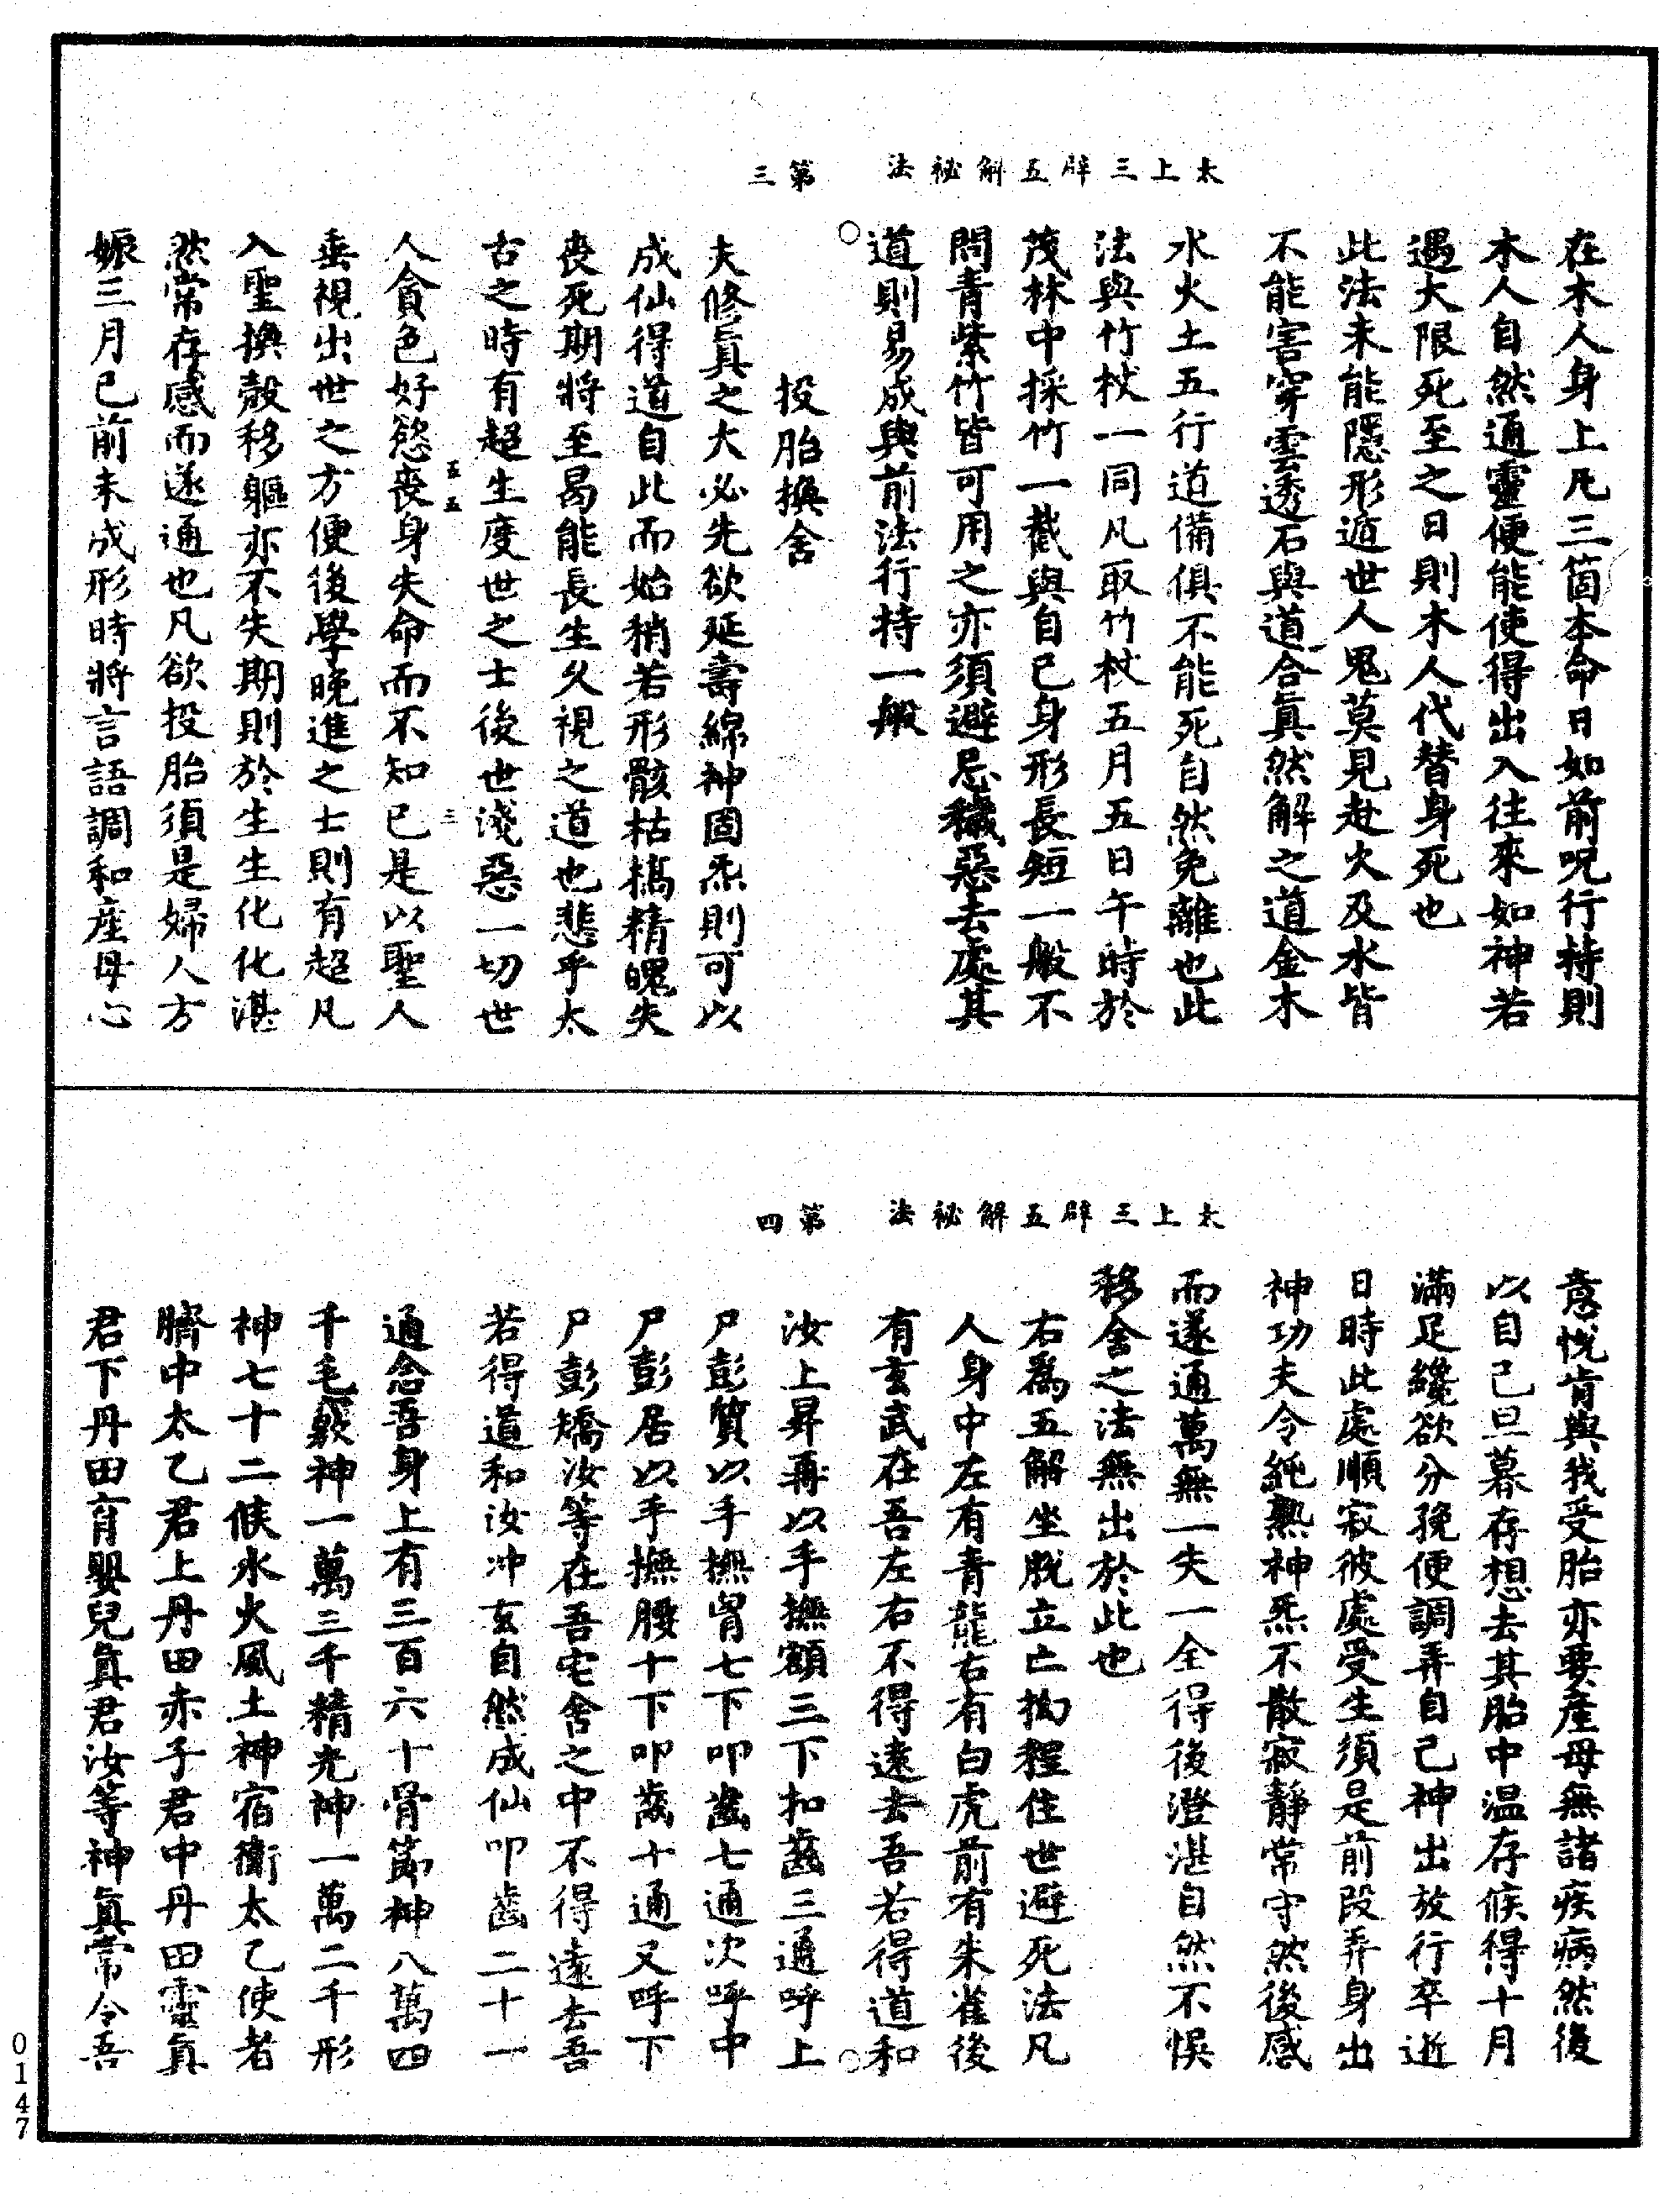 太上三辟五解祕法　第三
在木人身上凡三箇本命日如前呪行持則
木人自然通靈便能使得出入往來如神若
遇大限死至之日則木人代替身死也
此法未能隱形遁世人鬼莫見赴火及水皆
不能害穿雲透石與道合眞然解之道金木
水火土五行道備俱不能死自然免離也此
法與竹杖一同凡取竹杖五月五日午時於
茂林中採竹一截與自己身形長短一般不
問青紫竹皆可用之亦須避忌穢惡去處其
道則易成與前法行持一般
投胎換舍
夫修眞之大必先欲延壽綿神固炁則可以
成仙得道自此而始稍若形骸枯槁精魄失
喪死期將至曷能長生久視之道也悲乎太
古之時有超生度世之士後世淺惡一切世
五五　三
人貪色好慾喪身失命而不知已是以聖人
垂視出世之方便後學晚進之士則有超凡
入聖換殼移軀亦不失期則於生生化化湛
然常存感而遂通也凡欲投胎須是婦人方
娠三月已前未成形時將言語調和產母心
太上三辟五解祕法　第四
意悅肯與我受胎亦要產母無諸疾病然後
以自己旦暮存想去其胎中温存候得十月
滿足纔欲分娩便調弄自己神出放行卒逝
日時此處順寂彼處受生須是前段弄身出
神功夫令純熟神炁不散寂靜常守然後感
而遂通萬無一失一全得後澄湛自然不悞
移舍之法無出於此也
右爲五解坐脫立亡拘程住世避死法凡
人身中左有青龍右有白虎前有朱雀後
有玄武在吾左右不得遠去吾若得道和
汝上昇再以手撫額三下扣齒三通呼上
尸彭質以手撫胷七下叩齒七通次呼中
尸彭居以手撫腰十下叩齒十通又呼下
尸彭矯汝等在吾宅舍之中不得遠去吾
若得道和汝冲玄自然成仙叩齒二十一
通念吾身上有三百六十骨節神八萬四
千毛竅神一萬三千精光神一萬二千形
神七十二候水火風土神宿衞太乙使者
臍中太乙君上丹田赤子君中丹田靈眞
君下丹田育嬰兒眞君汝等神眞常令吾
0147